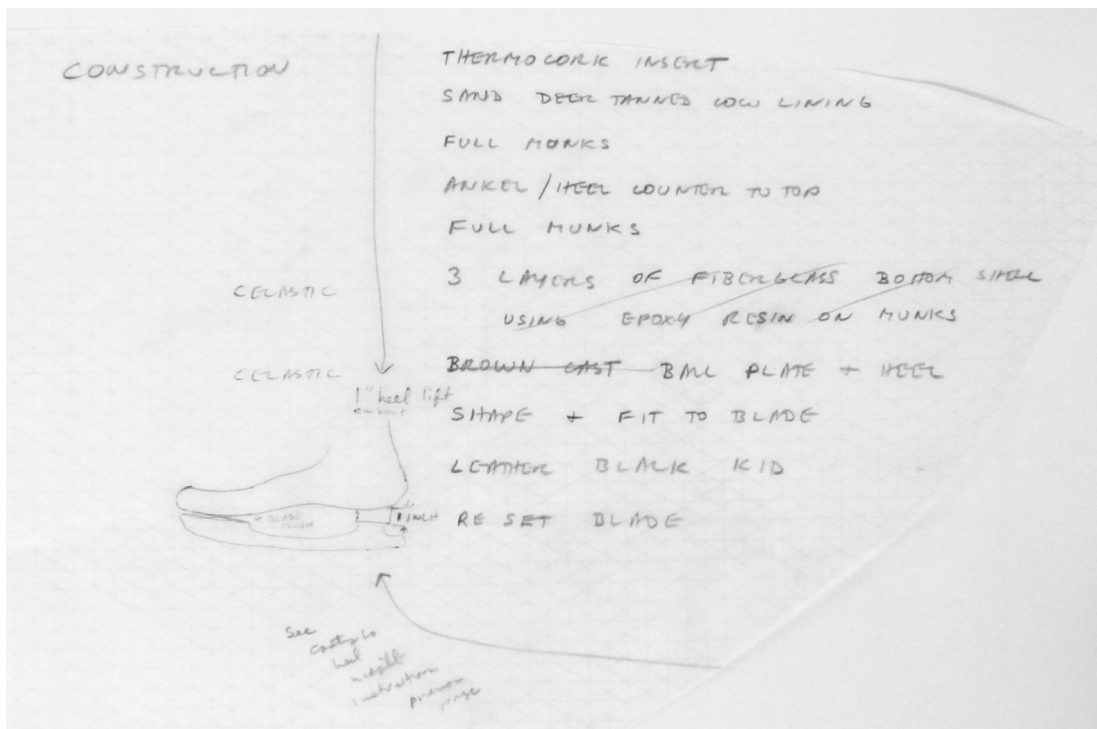 CONSTRUCTION
THERMOCORK INSERT
SAND DEER TANNED COW LINING
FULL MONKS
ANKEL / HEEL COUNTER TO TOP
FULL MUNKS
CELASTIC
3 LAYERS OF FIBERGLASS BOTTOM SHELL
USING EPOXY RESIN ON MUNKS
CELASTIC
BROWN CAST BALL PLATE + HEEL
1" heel lift
on boot
SHAPE + FIT TO BLADE
LEATHER BLACK KID
BLADE
1 INCH
RE SET BLADE
See
heel
instructions
page